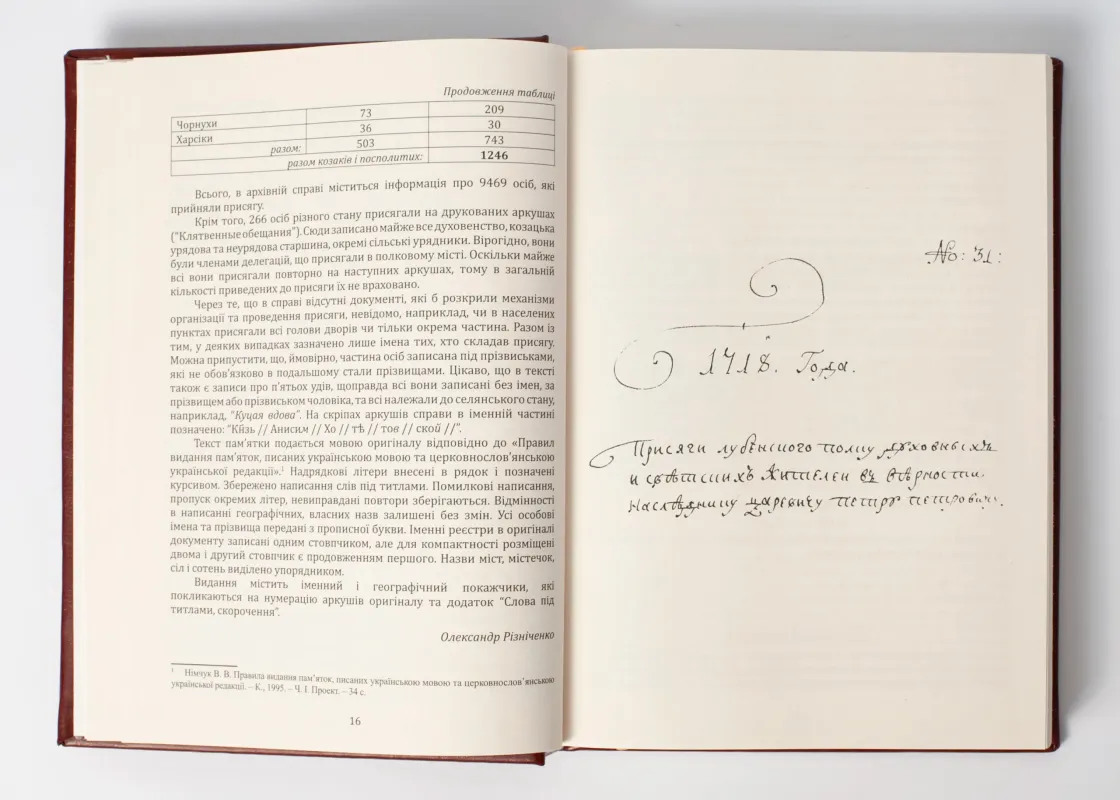 Продовження таблиці
Чорнухи 73 209
Харсіки 36 30
разом: 503 743
разом козаків і посполитих: 1246
Всього, в архівній справі міститься інформація про 9469 осіб, які
прийняли присягу.
Крім того, 266 осіб різного стану присягали на друкованих аркушах
("Клятвенные обещания"). Сюди записано майже все духовенство, козацька
урядова та неурядова старшина, окремі сільські урядники. Вірогідно, вони
були членами делегацій, що присягали в полковому місті. Оскільки майже
всі вони присягали повторно на наступних аркушах, тому в загальній
кількості приведених до присяги їх не враховано.
Через те, що в справі відсутні документі, які б розкрили механізми
організації та проведення присяги, невідомо, наприклад, чи в населених
пунктах присягали всі голови дворів чи тільки окрема частина. Разом із
тим, у деяких випадках зазначено лише імена тих, хто складав присягу.
Можна припустити, що, ймовірно, частина осіб записана під прізвиськами,
які не обов'язково в подальшому стали прізвищами. Цікаво, що в тексті
також є записи про п'ятьох удів, щоправда всі вони записані без імен, за
прізвищем або прізвиськом чоловіка, та всі належали до селянського стану,
наприклад, "Куцая вдова". На скріпах аркушів справи в іменній частині
позначено: "Кнѧзь // Анисим // Хо // тѣ // тов // ской //".
Текст пам'ятки подається мовою оригіналу відповідно до «Правил
видання пам'яток, писаних українською мовою та церковнослов'янською
української редакції».¹ Надрядкові літери внесені в рядок і позначені
курсивом. Збережено написання слів під титлами. Помилкові написання,
пропуск окремих літер, невиправдані повтори зберігаються. Відмінності
в написанні географічних, власних назв залишені без змін. Усі особові
імена та прізвища передані з прописної букви. Іменні реєстри в оригіналі
документу записані одним стовпчиком, але для компактності розміщені
двома і другий стовпчик є продовженням першого. Назви міст, містечок,
сіл і сотень виділено упорядником.
Видання містить іменний і географічний покажчики, які
покликаються на нумерацію аркушів оригіналу та додаток "Слова під
титлами, скорочення".
Олександр Різніченко
¹ Німчук В. В. Правила видання пам'яток, писаних українською мовою та церковнослов'янською
української редакції. – К., 1995. – Ч. I. Проект. – 34 с.
16
No: 31:
1718. Года.
Присяги лубенского полку духовныхъ
и свѣтскихъ жителей въ вѣрности
наслѣднику царевичу петру петровичу.